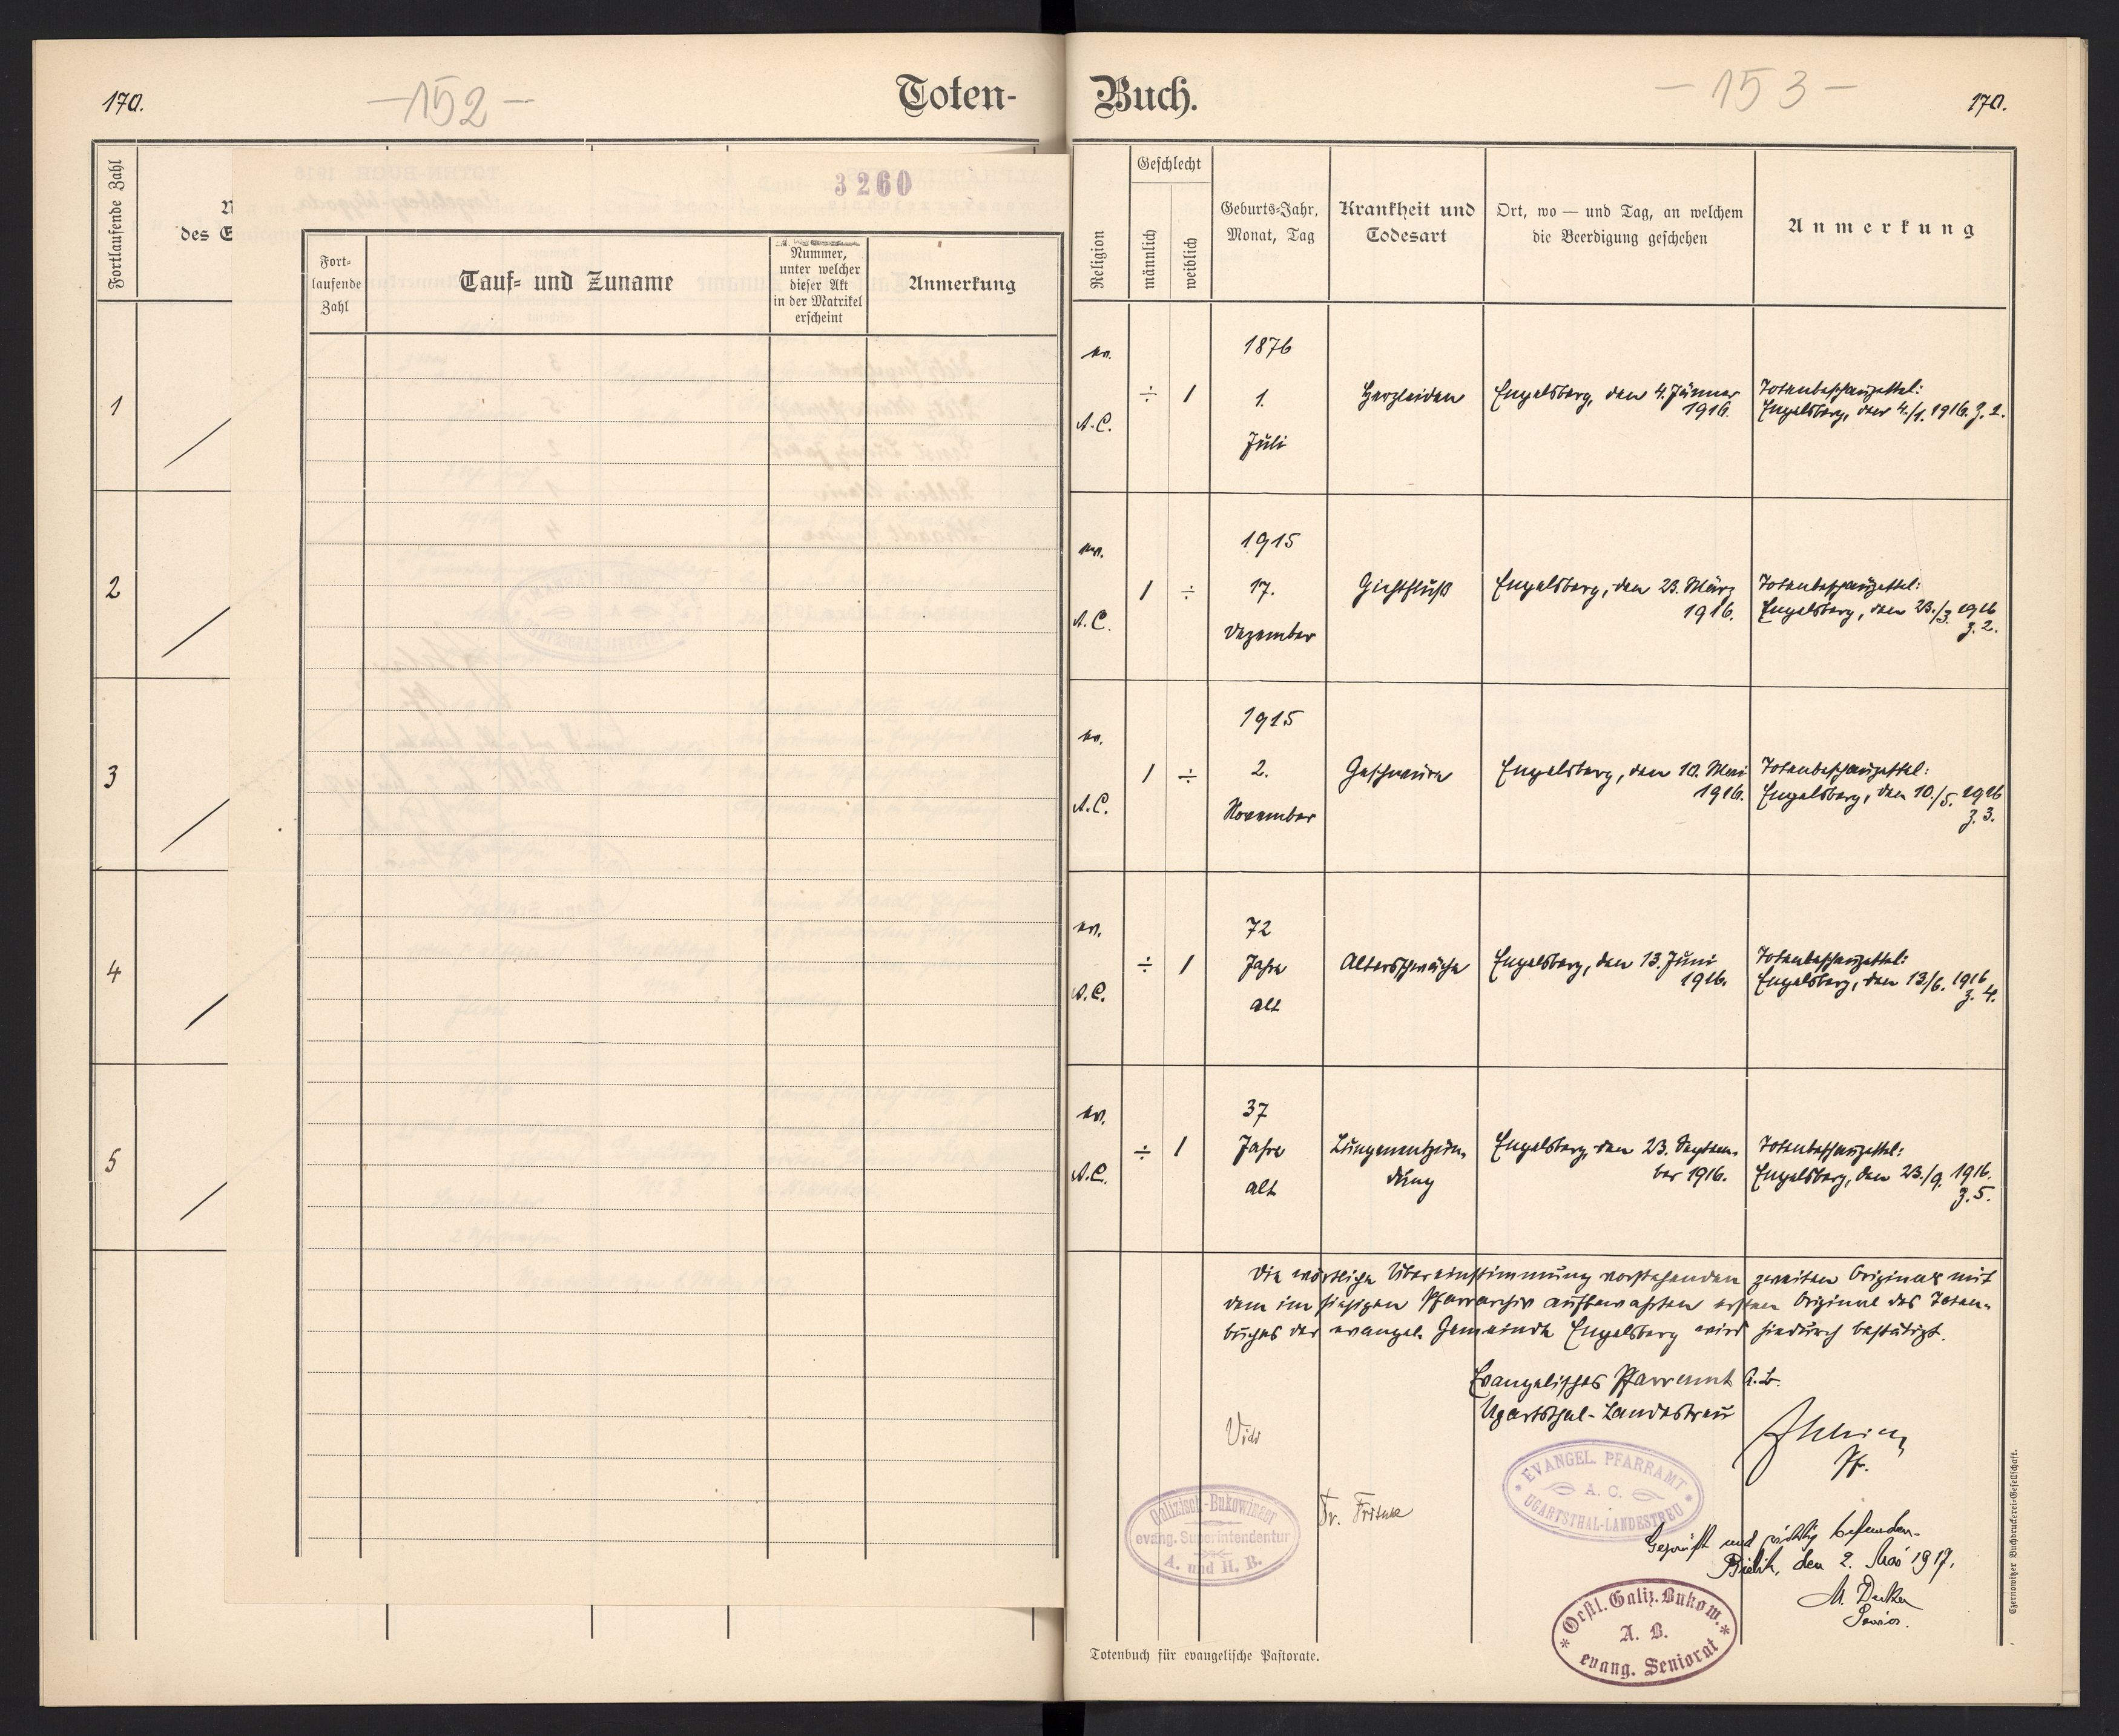 170.
—152—
Toten-
Fortlaufende Zahl
des
3260
Fort-
laufende
Zahl
Tauf- und Zuname
Nummer,
unter welcher
dieser Akt
in der Matrikel
erscheint
Anmerkung
1
2
3
4
5
Buch.
—153—
170.
Religion
Geschlecht
männlich
weiblich
Geburts-Jahr,
Monat, Tag
Krankheit und
Todesart
Ort, wo — und Tag, an welchem
die Beerdigung geschehen
Anmerkung
ev.
A.C.
÷
/
1876
1.
Juli
Herzleiden
Engelsberg, den 4. Jänner
1916.
Totenbeschauzettel:
Engelsberg, den 4./1. 1916. Z. 1.
ev.
A.C.
/
÷
1915
17.
Dezember
Gichtfluß
Engelsberg, den 23. März
1916.
Totenbeschauzettel:
Engelsberg, den 23./3. 1916
Z. 2.
ev.
A.C.
/
÷
1915
2.
November
Geschwüre
Engelsberg, den 10. Mai
1916.
Totenbeschauzettel:
Engelsberg, den 10./5. 1916
Z. 3.
ev.
A.C.
÷
/
72
Jahre
alt
Altersschwäche
Engelsberg, den 13. Juni
1916.
Totenbeschauzettel:
Engelsberg, den 13./6. 1916
Z. 4.
ev.
A.C.
÷
/
37
Jahre
alt
Lungenentzün-
dung
Engelsberg, den 23. Septem-
ber 1916.
Totenbeschauzettel:
Engelsberg, den 23./9. 1916.
Z. 5.
Die wörtliche Übereinstimmung vorstehenden zweiten Originals mit
dem im hiesigen Pfarrarchiv aufbewahrten ersten Original des Toten-
buches der evangel. Gemeinde Engelsberg wird hiedurch bestätigt.
Evangelisches Pfarramt A.B.
Ugartsthal-Landestreu
Pf.
Vidi
EVANGEL. PFARRAMT
A. C.
UGARTSTHAL-LANDESTREU
Galizisch-Bukowiner
evang. Superintendentur
A. und H. B.
Geprüft und richtig befunden.
Bielitz, den 2. Mai 1917.
Senior.
Oestl. Galiz. Bukow.
A. B.
evang. Seniorat
Czernowitzer Buchdruckerei-Gesellschaft.
Totenbuch für evangelische Pastorate.